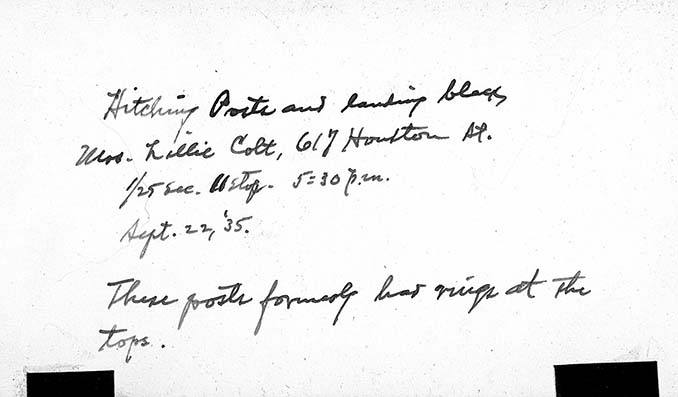 Hitching Posts and landing block
Mrs. Lillie Colt, 617 Houston St.
1/25 sec. U stop. 5:30 p.m.
Sept. 22, '35.
These posts formerly had rings at the
tops.